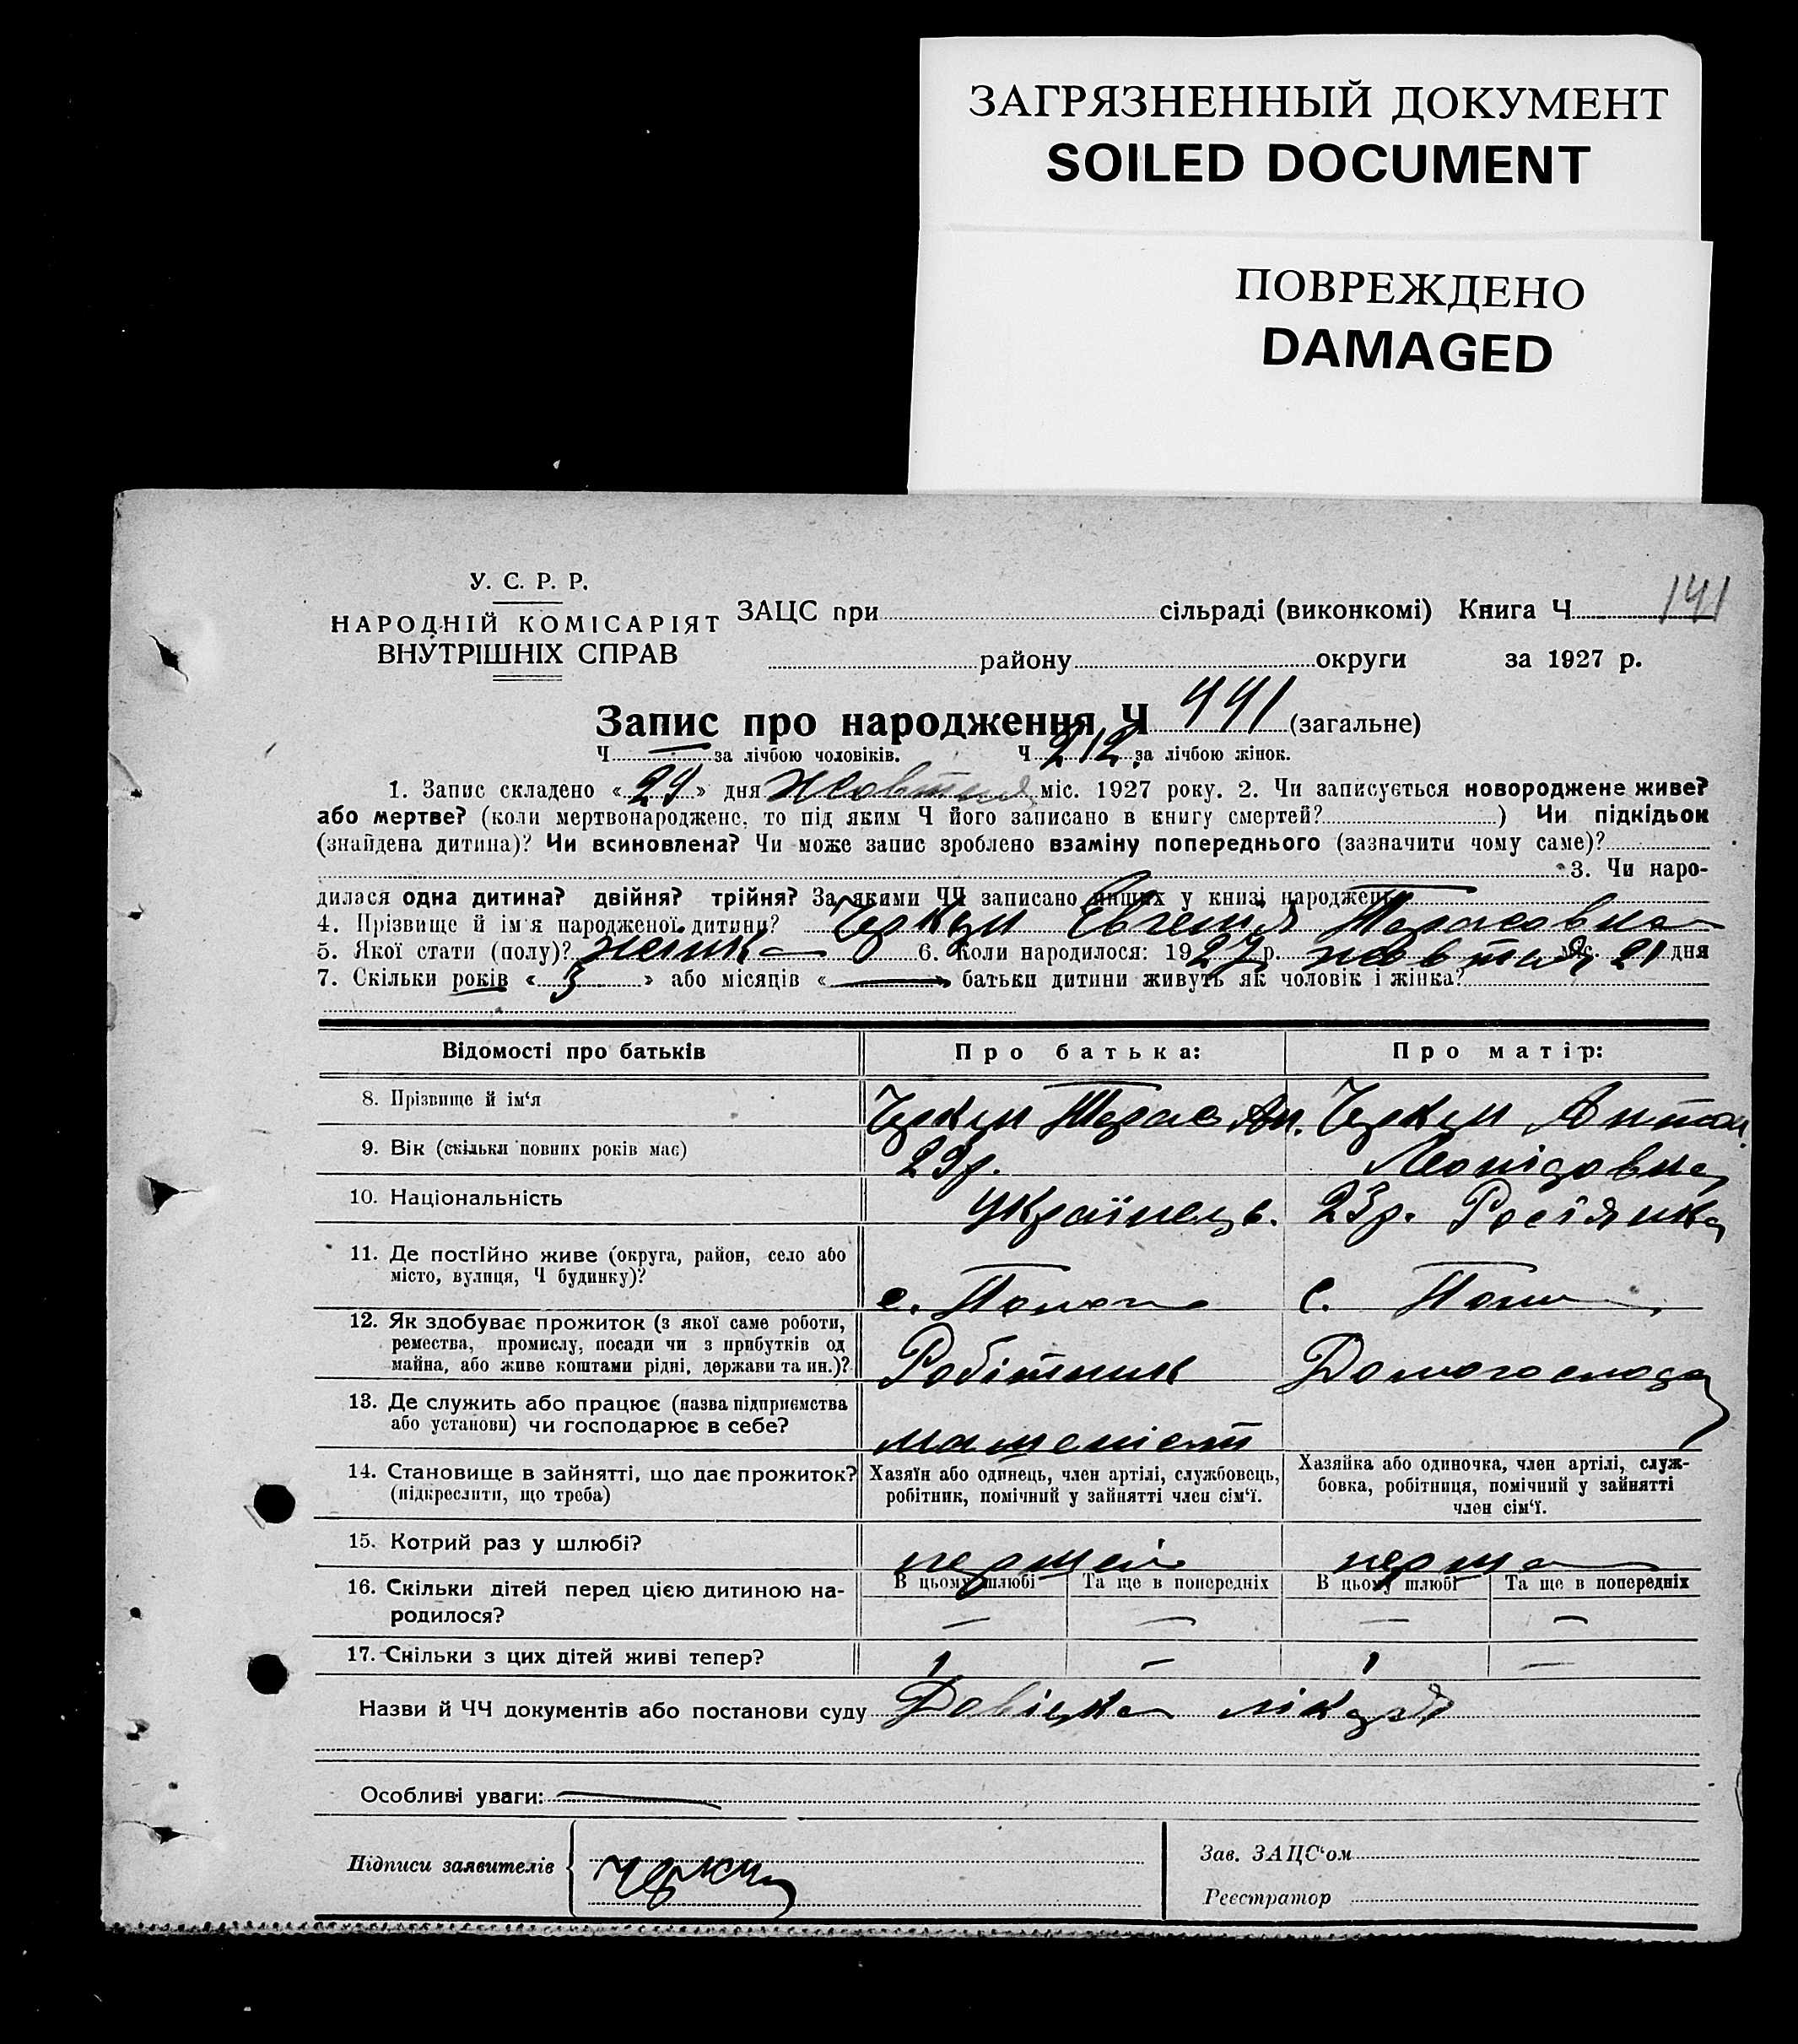 ЗАГРЯЗНЕННЫЙ ДОКУМЕНТ
SOILED DOCUMENT
ПОВРЕЖДЕНО
DAMAGED
141
У. С. Р. Р.
НАРОДНІЙ КОМІСАРІЯТ
ВНУТРІШНІХ СПРАВ
ЗАЦС при сільраді (виконкомі) Книга Ч
району округи за 1927 р.
Запис про народження Ч 441 (загальне)
Ч — за лічбою чоловіків. Ч 212 за лічбою жінок.
1. Запис складено «29» дня Жовтня міс. 1927 року. 2. Чи записується новороджене живе?
або мертве? (коли мертвонароджене, то під яким Ч його записано в книгу смертей? ) Чи підкідьок
(знайдена дитина)? Чи всиновлена? Чи може запис зроблено взаміну попереднього (зазначити чому саме)?
3. Чи наро-
дилася одна дитина? двійня? трійня? За якими ЧЧ записано инших у книзі народжень
4. Прізвище й ім'я народженої дитини? Евгенія Тарасовна
5. Якої стати (полу)? жіноча 6. Коли народилося: 1927 р. жовтня міс. 21 дня
7. Скільки років «3» або місяців «—» батьки дитини живуть як чоловік і жінка?
Відомості про батьків
Про батька:
Про матір:
8. Прізвище й ім'я
Тарас Ан.
Антон.
Леонідовна
9. Вік (скільки повних років має)
29р.
10. Національність
Українець.
23р. Росіянка
11. Де постійно живе (округа, район, село або
місто, вулиця, Ч будинку)?
с.
с.
12. Як здобуває прожиток (з якої саме роботи,
ремества, промислу, посади чи з прибутків од
майна, або живе коштами рідні, держави та ин.)?
Робітник
Домогоспода
13. Де служить або працює (назва підприємства
або установи) чи господарює в себе?
машеніст
14. Становище в зайнятті, що дає прожиток?
(підкреслити, що треба)
Хазяїн або одинець, член артілі, службовець,
робітник, помічний у зайнятті член сім'ї.
Хазяйка або одиночка, член артілі, служ-
бовка, робітниця, помічний у зайнятті
член сім'ї.
15. Котрий раз у шлюбі?
перший
перша
16. Скільки дітей перед цією дитиною на-
родилося?
В цьому шлюбі Та ще в попередніх В цьому шлюбі Та ще в попередніх
— — — —
17. Скільки з цих дітей живі тепер?
1 — 1 —
Назви й ЧЧ документів або постанови суду Довідка лікаря
Особливі уваги: —
Підписи заявителів
Зав. ЗАЦС'ом
Реєстратор